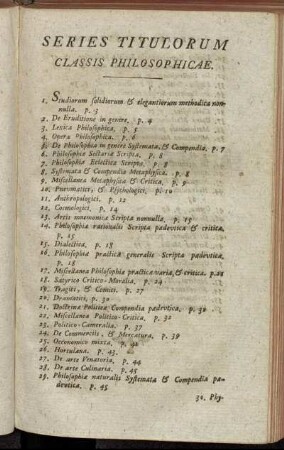 SERIES TITULORUM
CLASSIS PHILOSOPHICAE.
1. Studiorum solidiorum & elegantiorum methodica non-
nulla. p. 3
2. De Eruditione in genere, p. 4
3. Lexica Philosophica, p. 5
4. Opera Philosophica, p. 6
5. De Philosophia in genere Systemata, & Compendia. p. 7
6. Philosophiæ Sectariæ Scripta, p. 8
7. Philosophiæ Eclecticæ Scripta, p. 8
8. Systemata & Compendia Metaphysica. p. 8
9. Miscellanea Metaphysica & Critica, p. 9
10. Pneumatici, & Psychologici, p. 10
11. Anthropologici, p. 12
12. Cosmologici, p. 14
13. Artis mnemonicæ Scripta nonnulla, p. 15
14. Philosophiæ rationalis Scripta pædevtica & critica,
p. 15
15. Dialectica, p. 18
16. Philosophiæ practicæ generalis Scripta pædevtica,
p. 18
17. Miscellanea Philosophiæ practicæ varia, & critica. p.21
18. Satyrico Critico-Moralia, p. 24
19. Tragici, & Comici. p. 27
20. Dramatici, p. 30
21. Doctrinæ Politicæ Compendia pædevtica, p. 30
22. Miscellanea Politico-Critica, p. 32
23. Politico-Cameralia. p. 37
24. De Commerciis, & Mercatura. p. 39
25. Oeconomico mixta, p. 40
26. Hortulana. p. 43.
27. De arte Venatoria, p. 44
28. De arte Culinaria. p. 45
29. Philosophiæ naturalis Systemata & Compendia pæ-
devtica. p. 45
30. Phy-